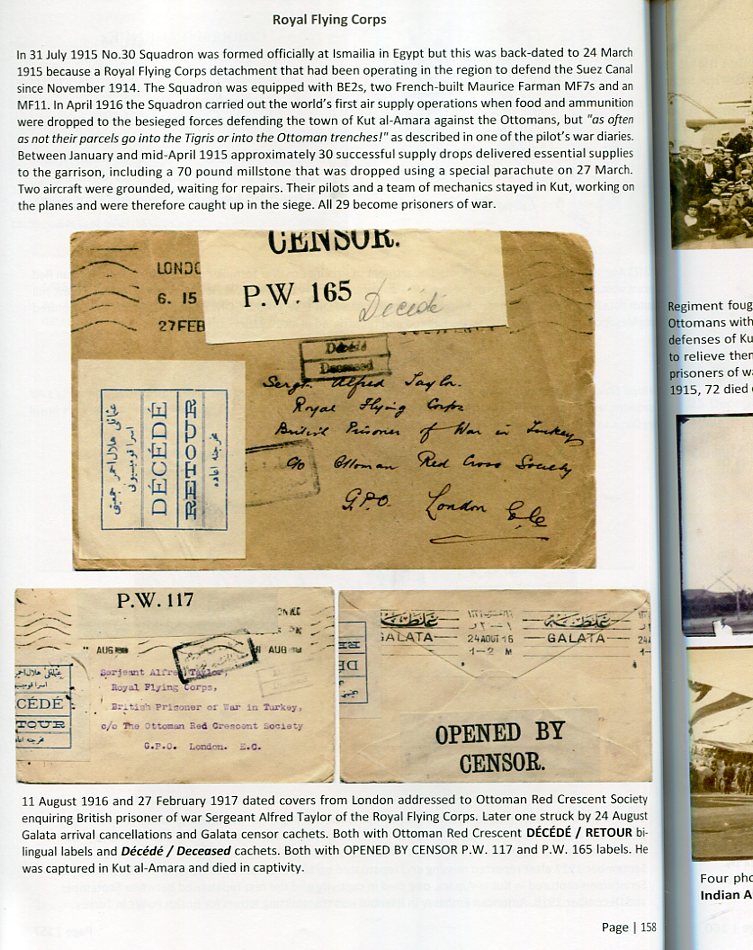 Royal Flying Corps
In 31 July 1915 No.30 Squadron was formed officially at Ismailia in Egypt but this was back-dated to 24 March
1915 because a Royal Flying Corps detachment that had been operating in the region to defend the Suez Canal
since November 1914. The Squadron was equipped with BE2s, two French-built Maurice Farman MF7s and an
MF11. In April 1916 the Squadron carried out the world's first air supply operations when food and ammunition
were dropped to the besieged forces defending the town of Kut al-Amara against the Ottomans, but "as often
as not their parcels go into the Tigris or into the Ottoman trenches!" as described in one of the pilot's war diaries.
Between January and mid-April 1915 approximately 30 successful supply drops delivered essential supplies
to the garrison, including a 70 pound millstone that was dropped using a special parachute on 27 March.
Two aircraft were grounded, waiting for repairs. Their pilots and a team of mechanics stayed in Kut, working on
the planes and were therefore caught up in the siege. All 29 become prisoners of war.
CENSOR.
P.W. 165
Décédé
LONDO
6. 15
27FEB
Décédé
Deceased
Sergt. Alfred Taylor.
Royal Flying Corps
British Prisoner of War in Turkey
c/o Ottoman Red Cross Society
G.P.O. London E.C
عثمانلی هلال احمر جمعیتی
DÉCÉDÉ
RETOUR
مخرجنه اعاده
P.W. 117
AUG
AUG
Serjeant Alfred Taylor,
Royal Flying Corps,
British Prisoner of War in Turkey,
c/o The Ottoman Red Crescent Society
G.P.O. London. E.C.
CÉDÉ
TOUR
مخرجنه اعاده
غلطه
غلطه
GALATA
24 AOUT 16
1-2 M
GALATA
24
OPENED BY
CENSOR.
11 August 1916 and 27 February 1917 dated covers from London addressed to Ottoman Red Crescent Society
enquiring British prisoner of war Sergeant Alfred Taylor of the Royal Flying Corps. Later one struck by 24 August
Galata arrival cancellations and Galata censor cachets. Both with Ottoman Red Crescent DÉCÉDÉ / RETOUR bi-
lingual labels and Décédé / Deceased cachets. Both with OPENED BY CENSOR P.W. 117 and P.W. 165 labels. He
was captured in Kut al-Amara and died in captivity.
Page | 158
Regiment foug
Ottomans with
defenses of Ku
to relieve then
prisoners of wa
1915, 72 died
Four pho
Indian A